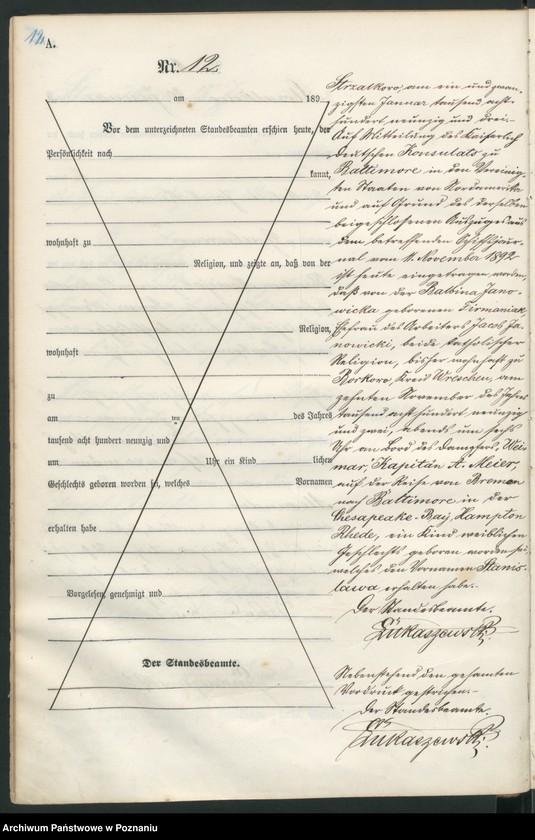 12.
A.
Nr. 12
am 189
Vor dem unterzeichneten Standesbeamten erschien heute, der
Persönlichkeit nach
kannt,
wohnhaft zu
Religion, und zeigte an, daß von der
Religion,
wohnhaft
zu
am ten des Jahres
tausend acht hundert neunzig und
um Uhr ein Kind lichen
Geschlechts geboren worden sei, welches Vornamen
erhalten habe
Vorgelesen, genehmigt und
Der Standesbeamte.
Strzalkowo, am ein und zwan-
zigsten Januar tausend acht-
hundert neunzig und drei.-
Auf Mitteilung des Kaiserlich
Deutschen Konsulats zu
Baltimore in den Vereinig-
ten Staaten von Nordamerika
und auf Grund des derselben
beigeschlossenen Auszuges aus
dem betreffenden Schiffsjour-
nal vom 11. November 1892
ist heute eingetragen worden,
daß von der Balbina Jano-
wicka geborenen Firmaniak,
Ehefrau des Arbeiters Jacob Ja-
nowicki, beide katholischer
Religion, bisher wohnhaft zu
Kreis Wreschen, am
zehnten November des Jahres
tausend acht hundert neunzig
und zwei, abends um sechs
Uhr an Bord des Dampfers „Wei-
mar", Kapitän A. Meier,
auf der Reise von Bremen
nach Baltimore in der
Chesapeake-Bay, Hampton
Rhede, ein Kind weiblichen
Geschlechts geboren worden sei,
welches den Vornamen Stanis-
lawa erhalten habe.-
Der Standesbeamte.
Łukaszewski
Nebenstehend den gesamten
Vordruck gestrichen.-
Der Standesbeamte.
Łukaszewski
Archiwum Państwowe w Poznaniu